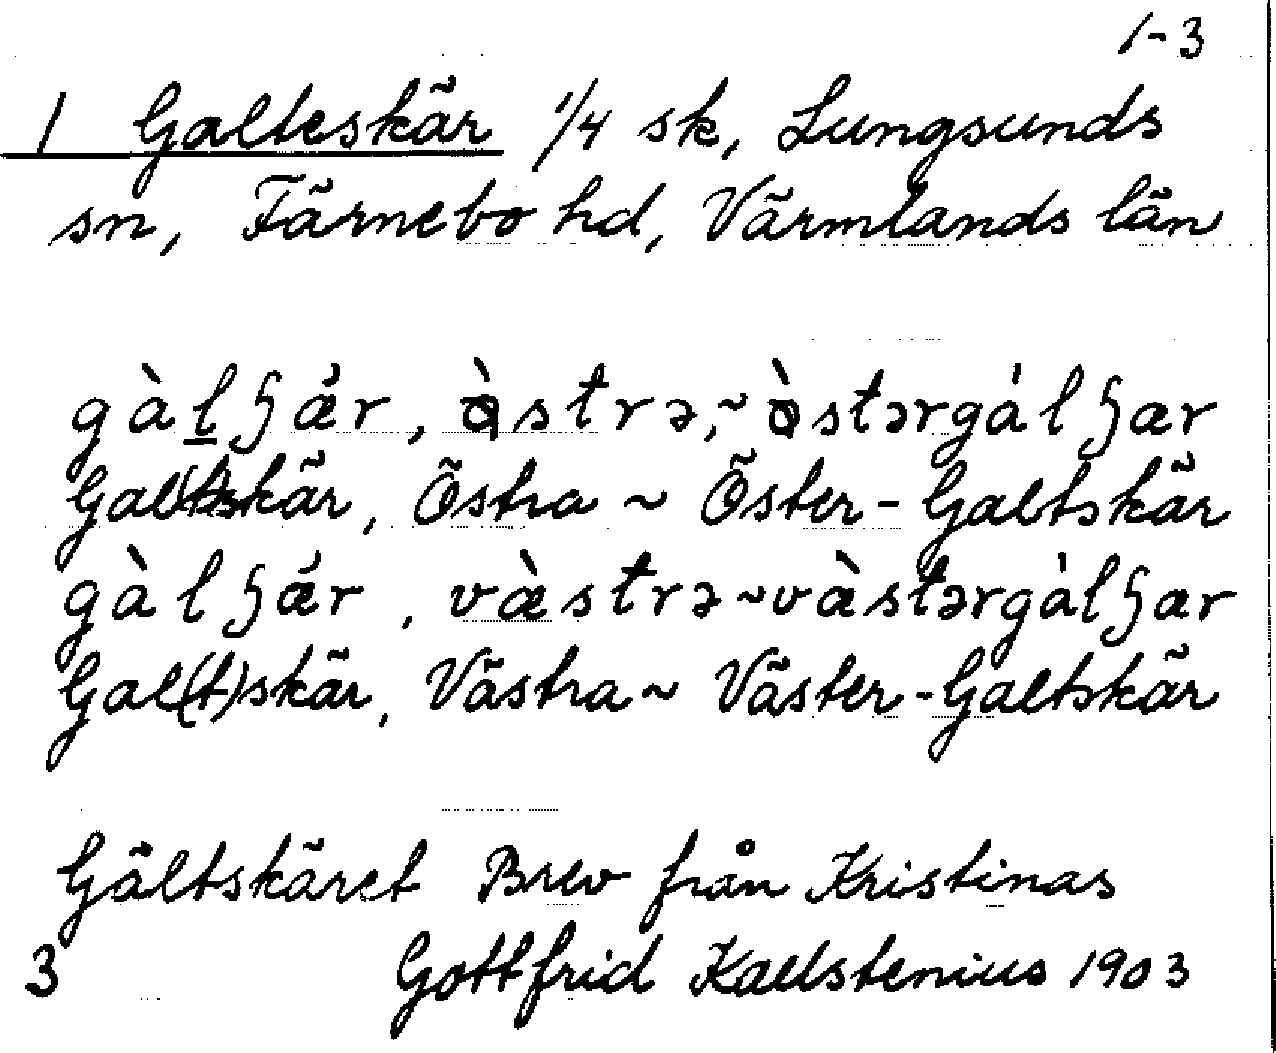 1-3
1 Galteskär 1/4 sk, Lungsunds
sn, Färnebo hd, Värmlands län
gàlʃǽr, òstrə, ~ òstərgálʃær
Gal(t)skär, Östra ~ Öster-Galtskär
gàlʃǽr, væ̀strə ~ væ̀stərgálʃær
Gal(t)skär, Västra ~ Väster-Galtskär
Gältskäret Brev från Kristinas
3 Gottfrid Kallstenius 1903